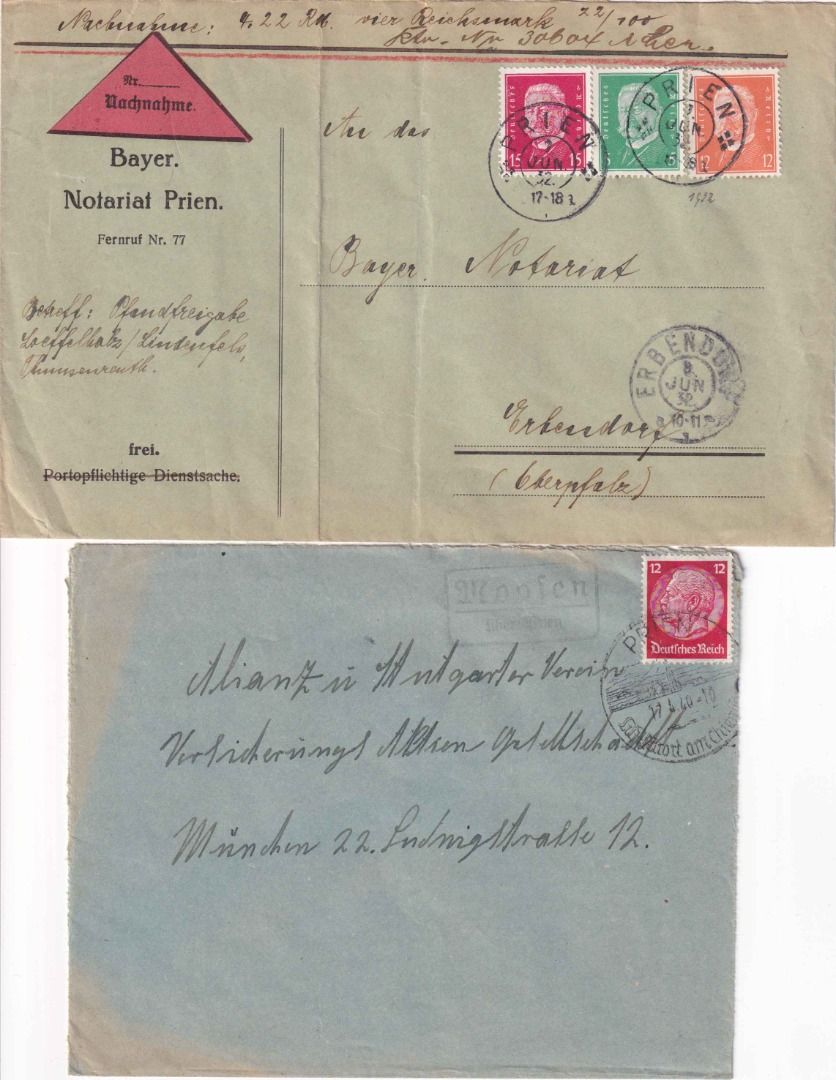 Nachnahme: 4,22 RM. vier Reichsmark 22/100
Kto. Nr. 30604 Mchen.
Nr.
Nachnahme.
Bayer.
Notariat Prien.
Fernruf Nr. 77
Betreff: Pfandfreigabe
Loeffelholz/Lindenfels,
Thumsenreuth.
frei.
Portopflichtige Dienstsache.
An das
Deutsches Reich
15 15
5
12 12
PRIEN
7
JUN
32.
17-18
PRIEN
7
JUN
32
1932
Bayer. Notariat
ERBENDORF
8.
JUN
32.
10-11
Erbendorf
(Oberpfalz)
über Prien
12 12
Deutsches Reich
PRIEN
17.4.40-10
Allianz u Stuttgarter Verein
Versicherungs Aktien Gesellschaft
München 22. Ludwigstrasse 12.